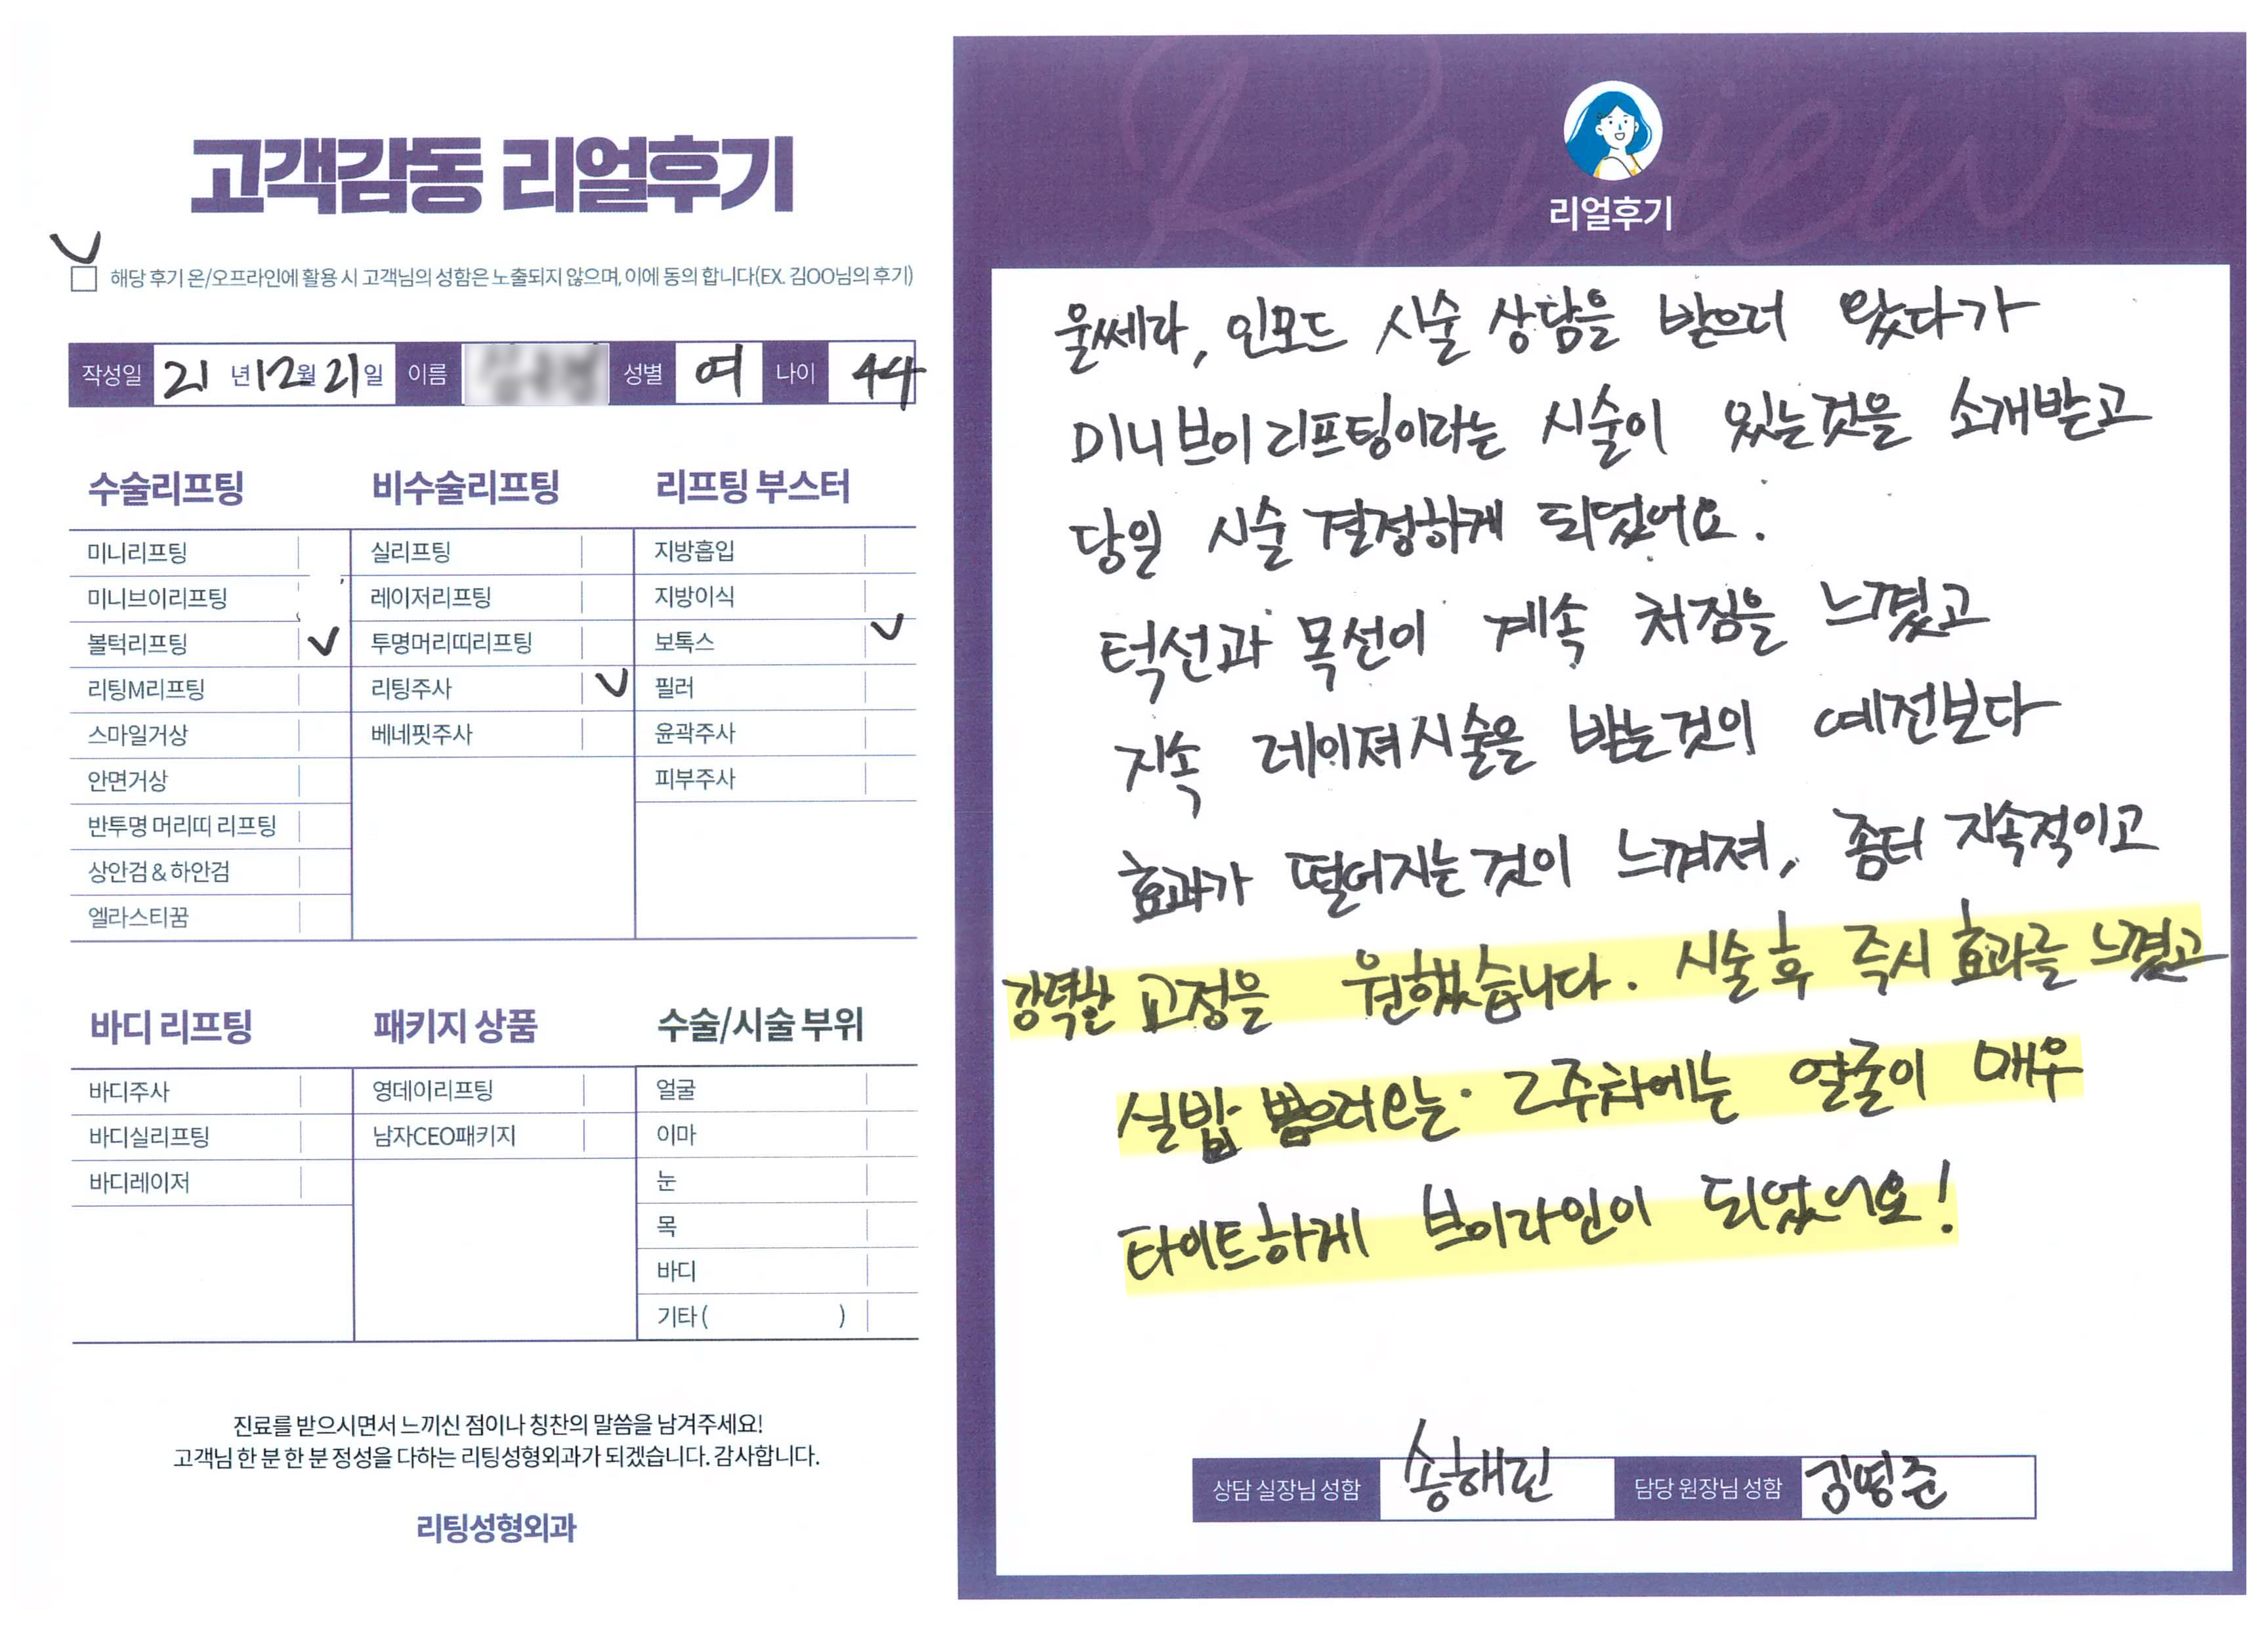 고객감동 리얼후기
해당 후기 온/오프라인에 활용 시 고객님의 성함은 노출되지 않으며, 이에 동의 합니다(EX. 김OO님의 후기)
작성일 21년 12월 21일 이름 성별 여 나이 44
수술리프팅
미니리프팅
미니브이리프팅
볼턱리프팅
리팅M리프팅
스마일거상
안면거상
반투명 머리띠 리프팅
상안검 & 하안검
엘라스티꿈
비수술리프팅
실리프팅
레이저리프팅
투명머리띠리프팅
리팅주사
베네핏주사
리프팅 부스터
지방흡입
지방이식
보톡스
필러
윤곽주사
피부주사
바디 리프팅
바디주사
바디실리프팅
바디레이저
패키지 상품
영데이리프팅
남자CEO패키지
수술/시술 부위
얼굴
이마
눈
목
바디
기타 ( )
진료를 받으시면서 느끼신 점이나 칭찬의 말씀을 남겨주세요!
고객님 한 분 한 분 정성을 다하는 리팅성형외과가 되겠습니다. 감사합니다.
리팅성형외과
Review
리얼후기
울쎄라, 인모드 시술 상담을 받으러 왔다가
미니브이리프팅이라는 시술이 있는것을 소개받고
당일 시술 결정하게 되었어요.
턱선과 목선이 계속 처짐을 느꼈고
지속 레이져시술을 받는것이 예전보다
효과가 떨어지는 것이 느껴져, 좀더 지속적이고
강력한 교정을 원했습니다. 시술 후 즉시 효과를 느꼈고
실밥 뽑으러오는 2주차에는 얼굴이 매우
타이트하게 브이라인이 되었어요!
상담 실장님 성함 송해린 담당 원장님 성함 김명준